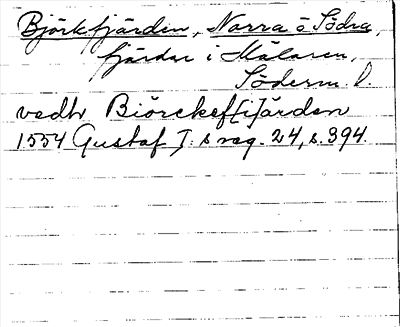 Björkfjärden, Norra o Södra,
fjärdar i Mälaren,
Söderm. l.
vedh Biörckef[i]ärden
1554 Gustaf I:s reg. 24, s. 394.